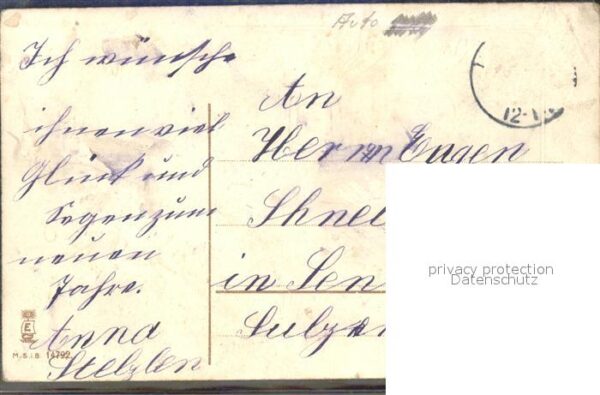 Auto
Ich wünsche
ihnen viel
Glück und
Segen zum
neuen
Jahre.
Anna
Stelzlen
M.S.i.B. 14792
12-1
An
Herrn Eugen
Shnel
in Sen
Sulz
privacy protection
Datenschutz